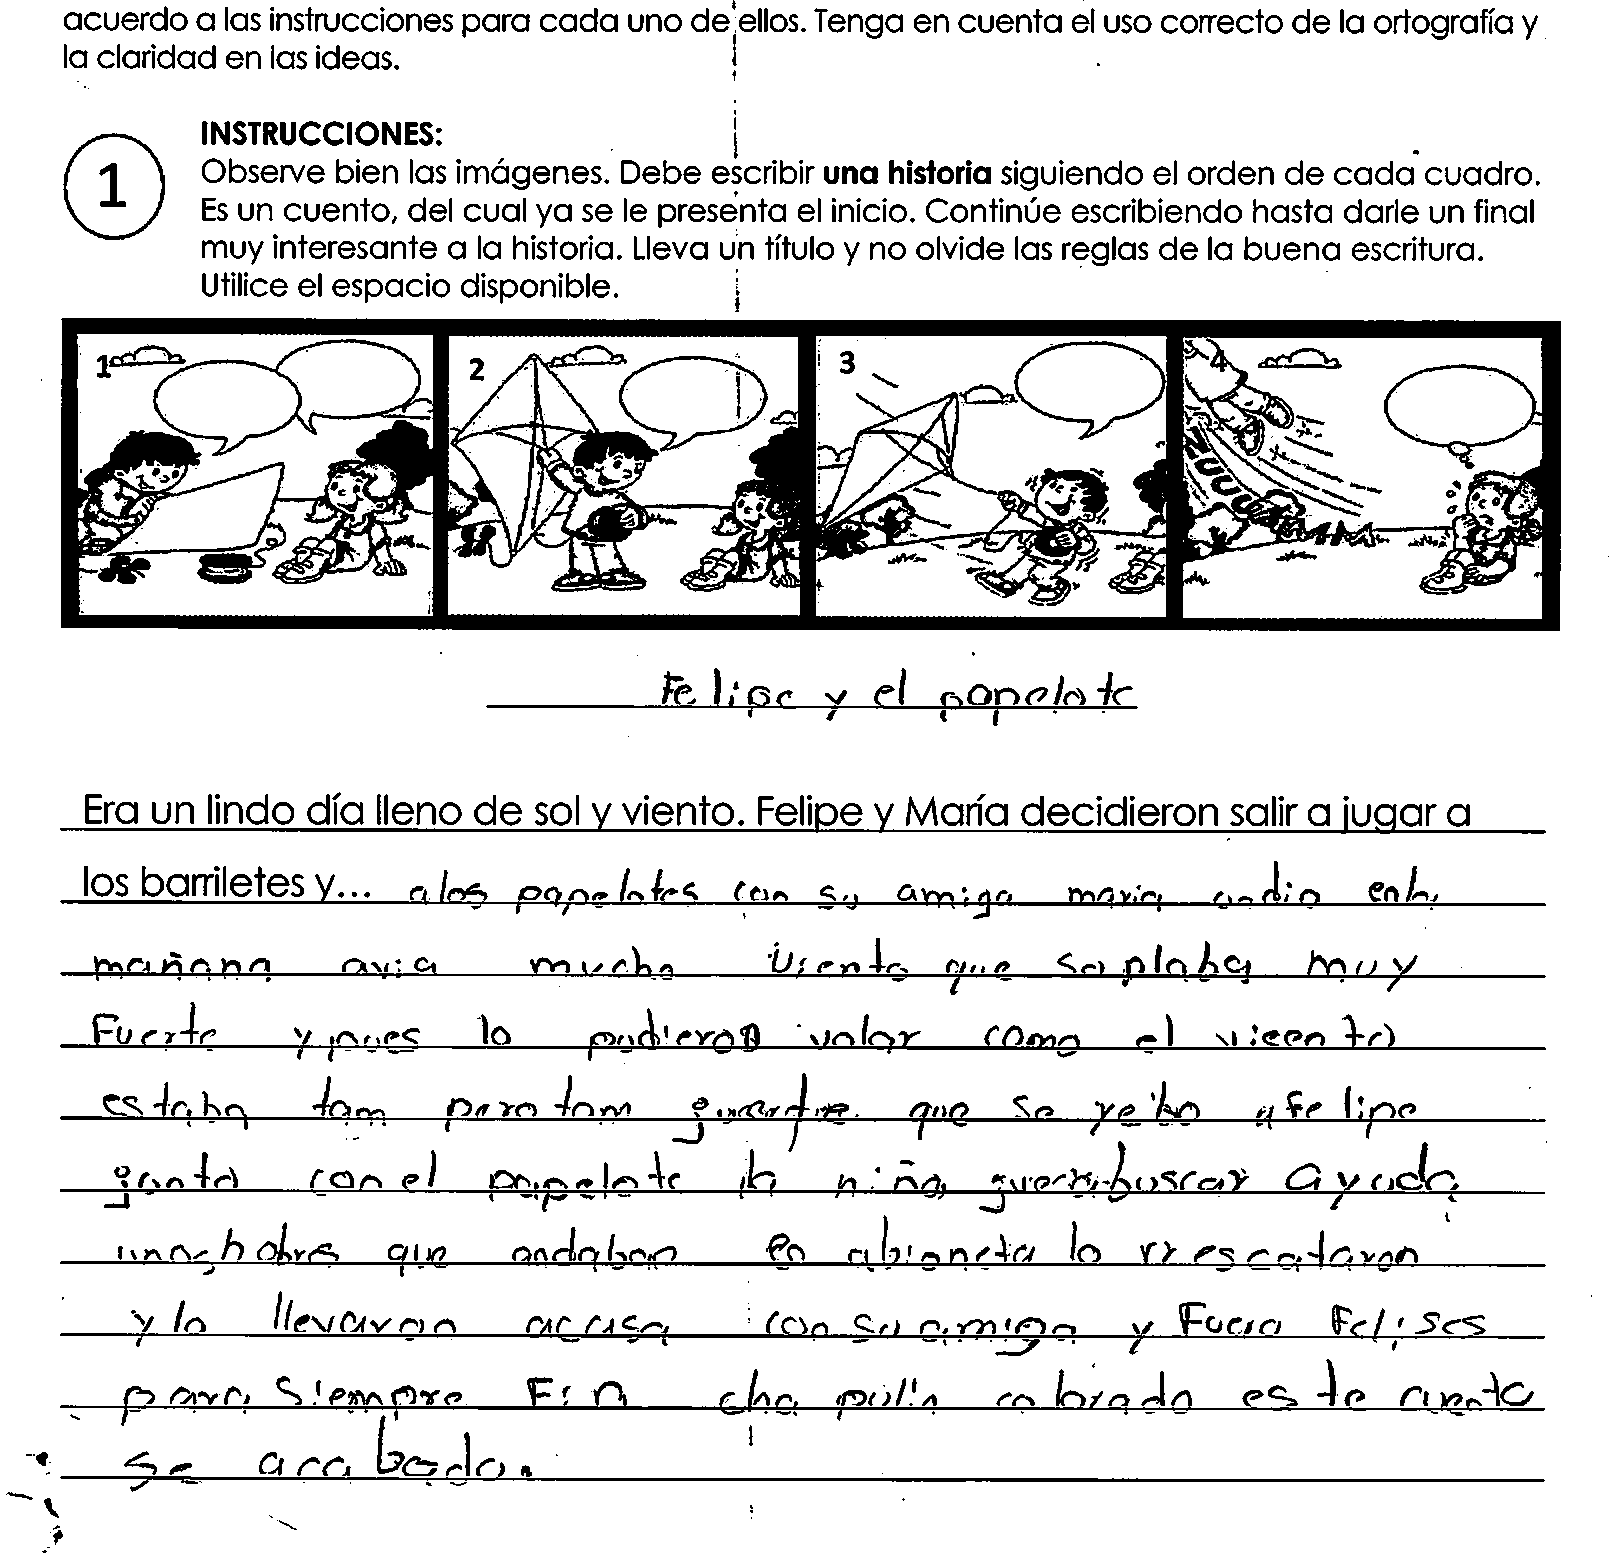 acuerdo a las instrucciones para cada uno de ellos. Tenga en cuenta el uso correcto de la ortografía y
la claridad en las ideas.
1
INSTRUCCIONES:
Observe bien las imágenes. Debe escribir una historia siguiendo el orden de cada cuadro.
Es un cuento, del cual ya se le presenta el inicio. Continúe escribiendo hasta darle un final
muy interesante a la historia. Lleva un título y no olvide las reglas de la buena escritura.
Utilice el espacio disponible.
1 2 3 4
ZUUUM
Felipe y el papelote
Era un lindo día lleno de sol y viento. Felipe y María decidieron salir a jugar a
los barriletes y... a los papelotes con su amiga maria undia enla
mañana avia mucho viento que soplaba muy
Fuerte y pues lo pudieron volar como el vicento
estaba tam pero tam que se yebo a Felipe
gunto con el papelote la niña buscar ayuda
unos hobres que andaban en abioneta lo rrescataron
y lo llevaron acasa con su amiga y Fuero Felises
para siempre Fin cha pulin colorado este cuento
se aca bado.